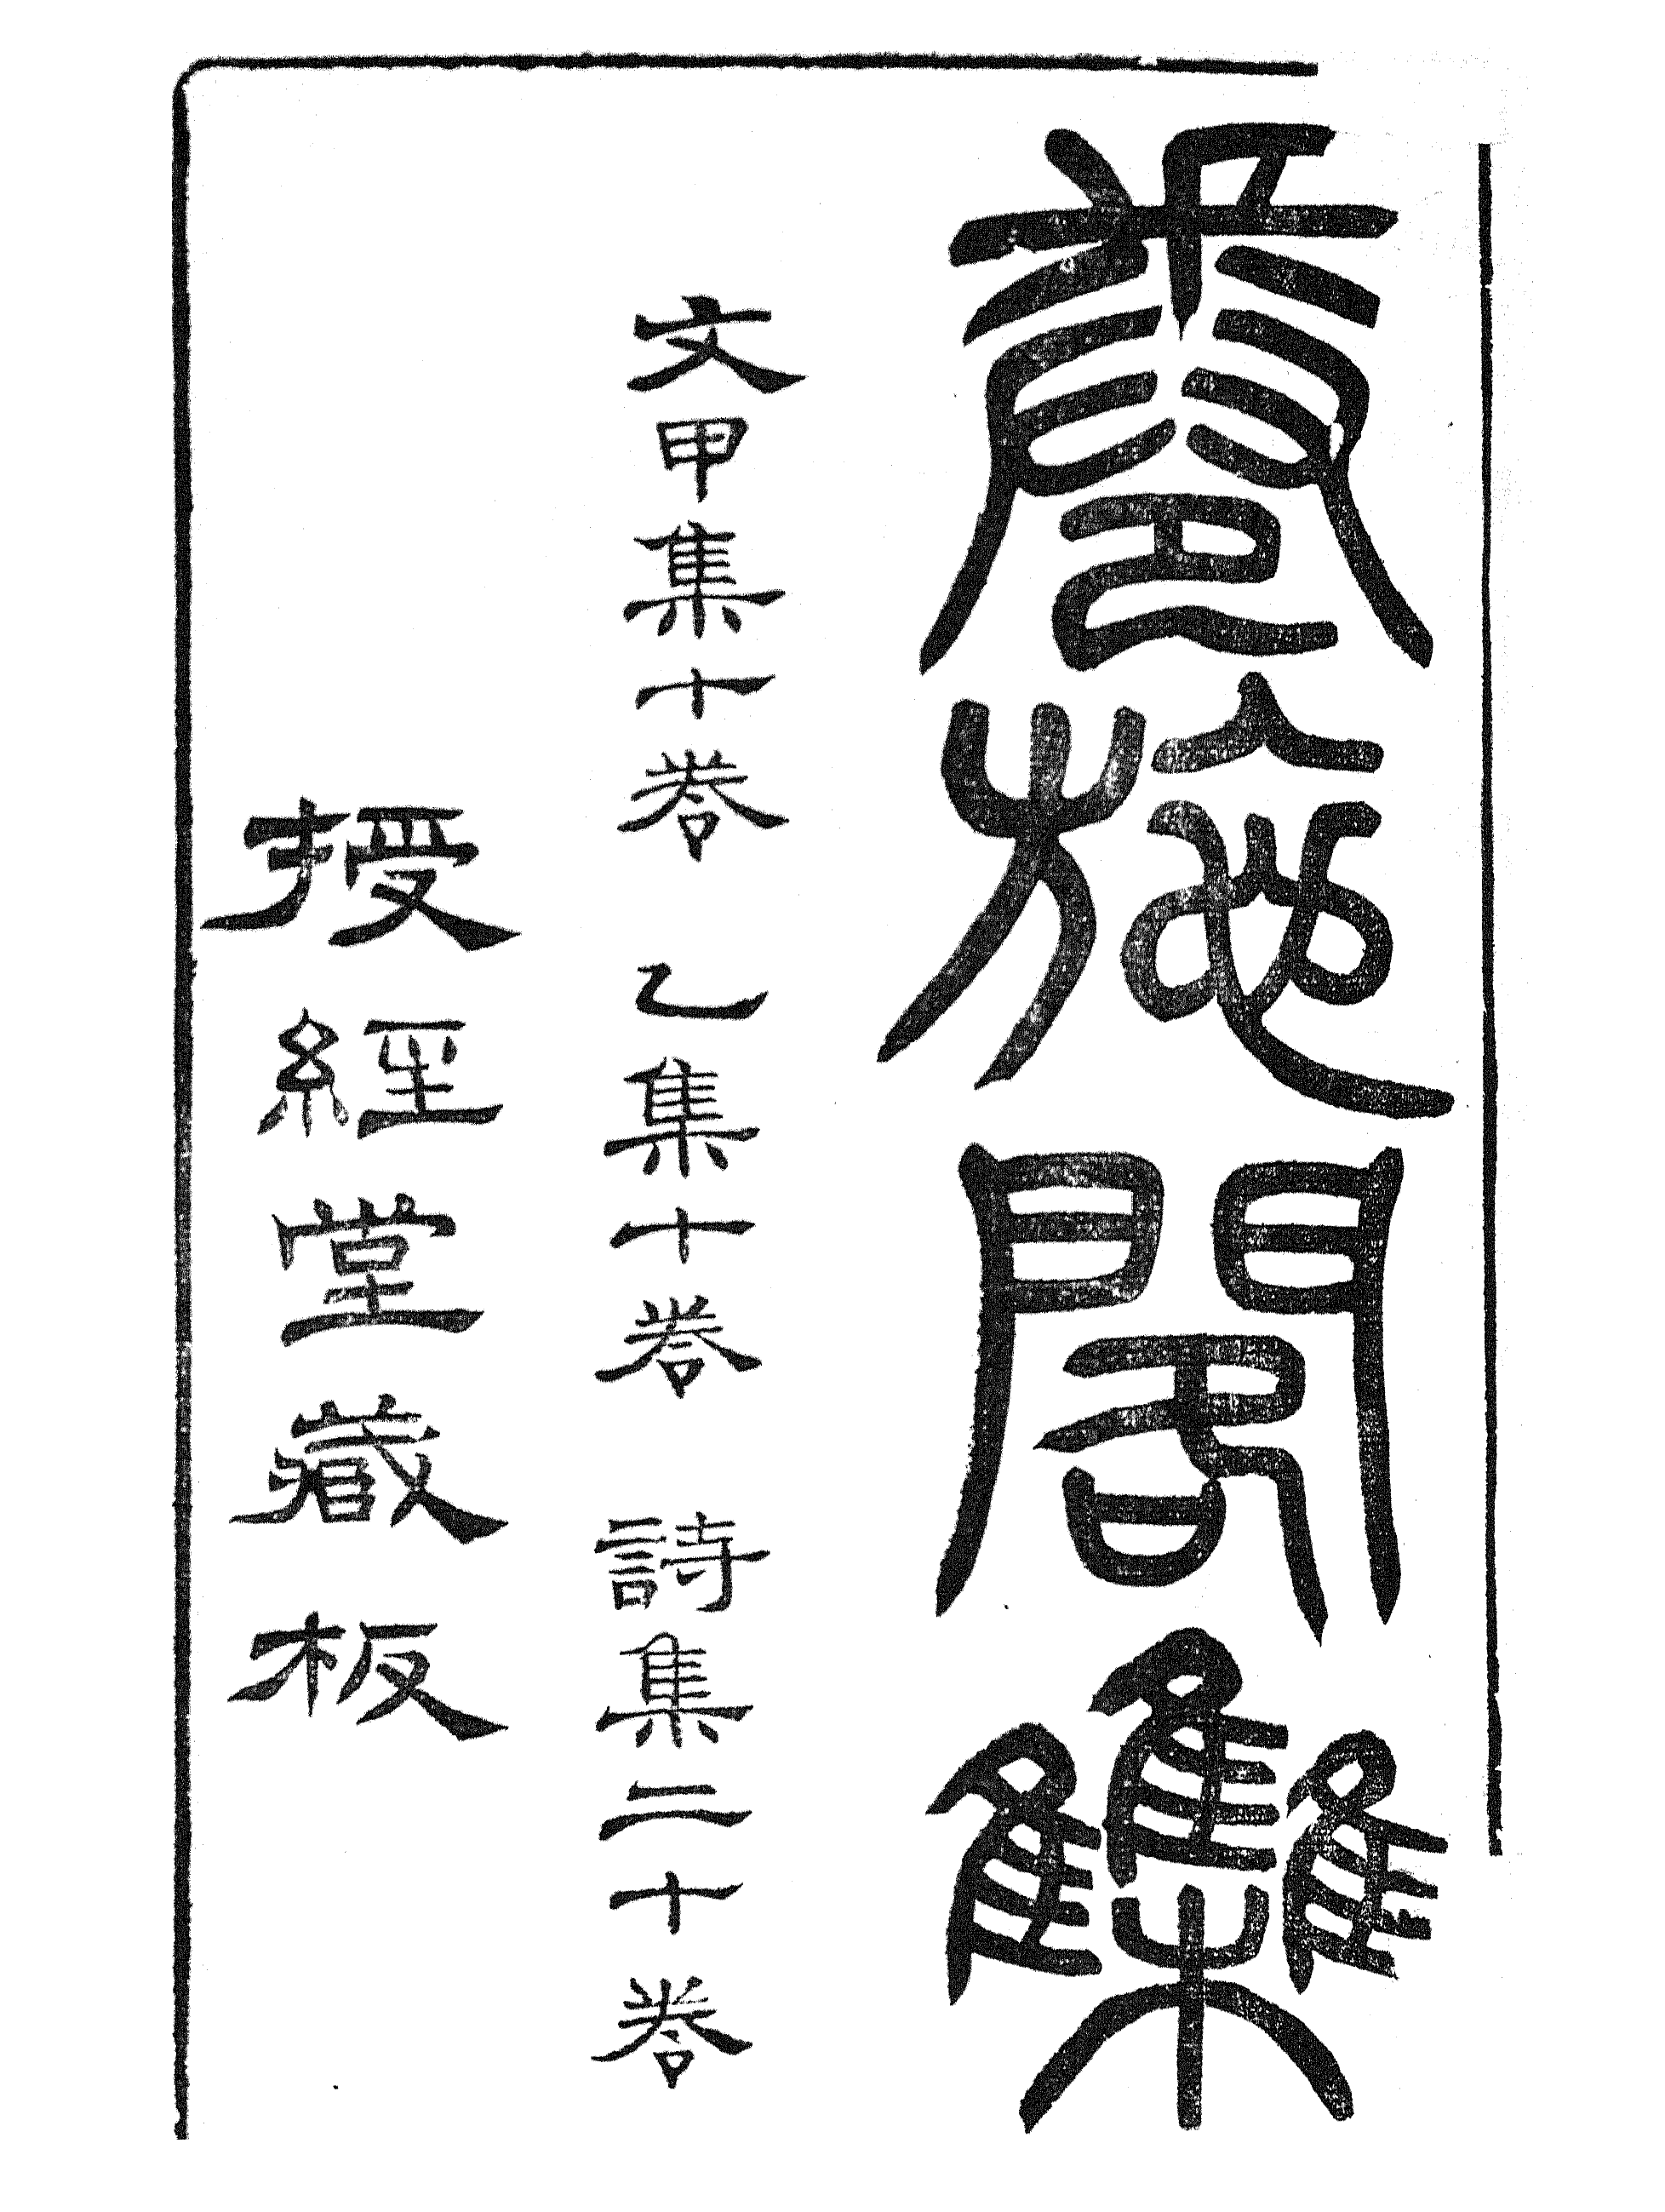 卷施閣集
文甲集十卷 乙集十卷 詩集二十卷
授經堂藏板